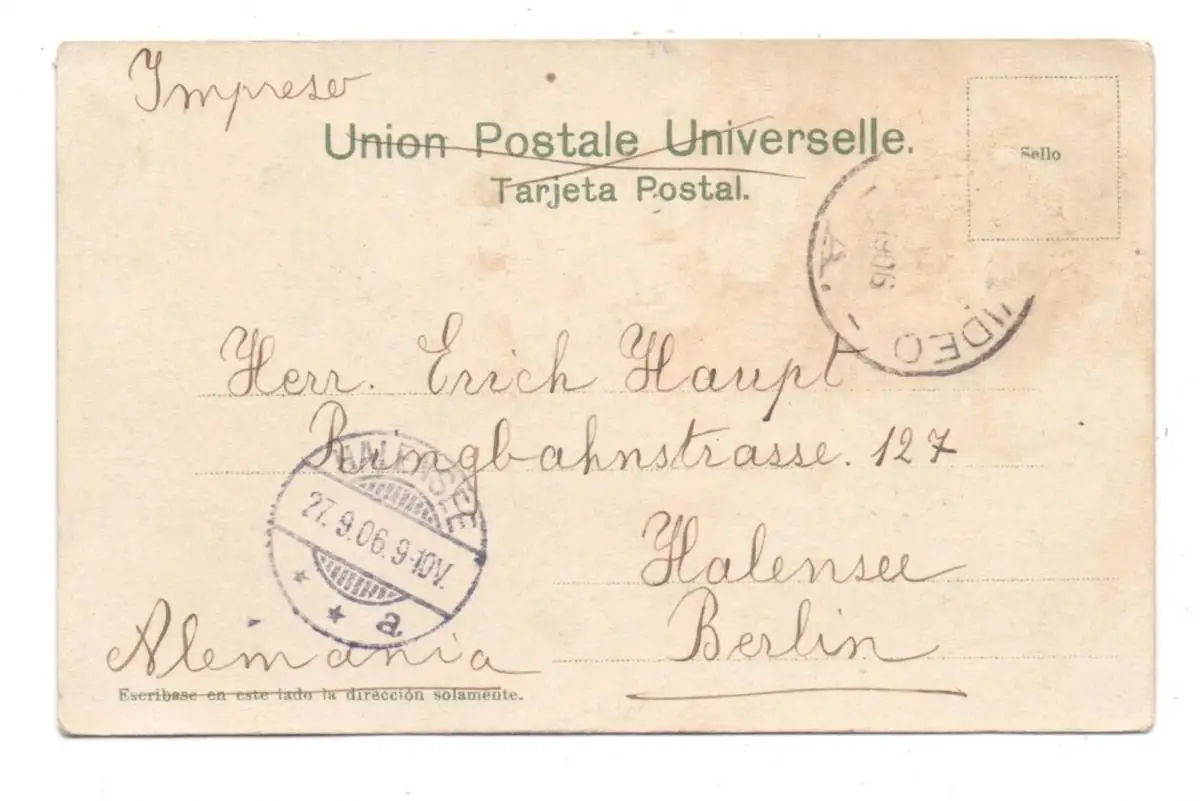 Impreso
Union Postale Universelle.
Tarjeta Postal.
Sello
A. 1906
DEO
Herr. Erich Haupt
Ringbahnstrasse. 127
HALENSEE
27.9.06.9-10V.
a
Halensee
Berlin
Alemania
Escribase en este lado la dirección solamente.